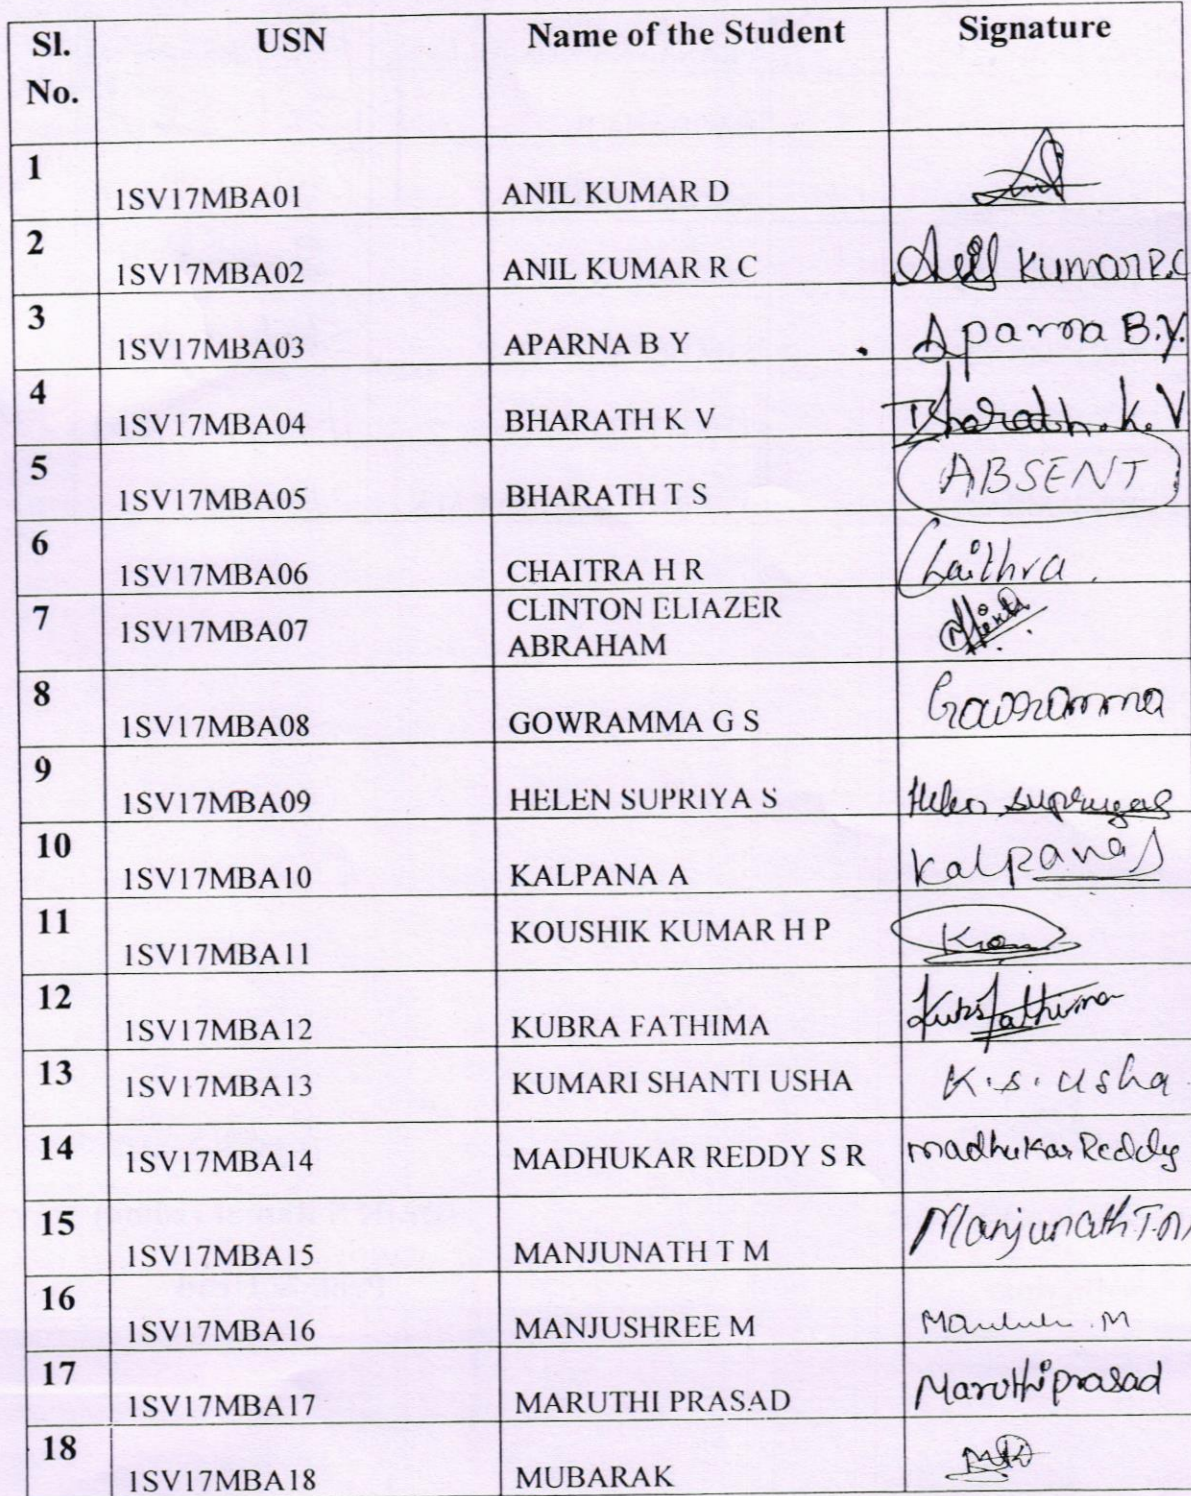 Sl. No. USN Name of the Student Signature
1 1SV17MBA01 ANIL KUMAR D
2 1SV17MBA02 ANIL KUMAR R C Kumar R.C
3 1SV17MBA03 APARNA B Y Aparna B.Y.
4 1SV17MBA04 BHARATH K V Bharath.K.V
5 1SV17MBA05 BHARATH T S ABSENT
6 1SV17MBA06 CHAITRA H R Chaithra.
7 1SV17MBA07 CLINTON ELIAZER
ABRAHAM
8 1SV17MBA08 GOWRAMMA G S Gowramma
9 1SV17MBA09 HELEN SUPRIYA S Helen Supriya S
10 1SV17MBA10 KALPANA A Kalpana
11 1SV17MBA11 KOUSHIK KUMAR H P
12 1SV17MBA12 KUBRA FATHIMA Fathima
13 1SV17MBA13 KUMARI SHANTI USHA K.S. Usha
14 1SV17MBA14 MADHUKAR REDDY S R madhukar Reddy
15 1SV17MBA15 MANJUNATH T M Manjunath T.M
16 1SV17MBA16 MANJUSHREE M
17 1SV17MBA17 MARUTHI PRASAD Maruthi prasad
18 1SV17MBA18 MUBARAK